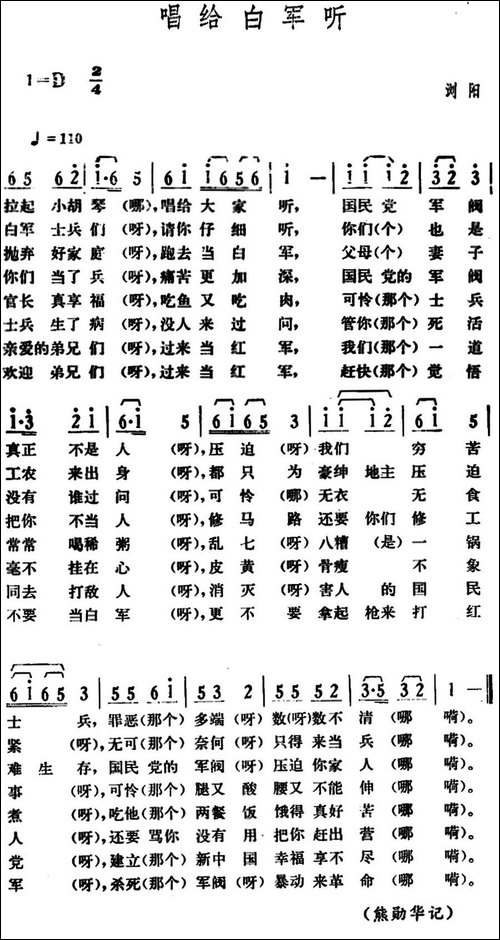 唱给白军听
1=D 2/4
浏阳
♩=110
6 5 6 2 | 1·6 5 | 6 1 1 6 5 6 | 1 — | 1 1 1 2 | 3 2 3 |
拉起 小胡 琴 (哪),唱给 大 家 听, 国民 党 军 阀
白军 士兵 们 (呀),请你 仔 细 听, 你们(个) 也 是
抛弃 好家 庭 (呀),跑去 当 白 军, 父母(个) 妻 子
你们 当了 兵 (呀),痛苦 更 加 深, 国民 党的 军 阀
官长 真享 福 (呀),吃鱼 又 吃 肉, 可怜(那个) 士 兵
士兵 生了 病 (呀),没人 来 过 问, 管你(那个) 死 活
亲爱的 弟兄 们 (呀),过来 当 红 军, 我们(那个) 一 道
欢迎 弟兄 们 (呀),过来 当 红 军, 赶快(那个) 觉 悟
1·3 2 1 | 6·1 5 | 6 1 6 5 3 | 1 1 1 2 | 6 1 5 |
真正 不是 人 (呀),压 迫 (呀) 我们 穷 苦
工农 来出 身 (呀),都 只 为 豪绅 地主 压 迫
没有 谁过 问 (呀),可 怜 (哪) 无衣 无 食
把你 不当 人 (呀),修 马 路 还要 你们 修 工
常常 喝稀 粥 (呀),乱 七 (呀) 八糟 (是) 一 锅
毫不 挂在 心 (呀),皮 黄 (呀) 骨瘦 不 象
同去 打敌 人 (呀),消 灭 (呀) 害人 的 国 民
不要 当白 军 (呀),更 不 要 拿起 枪来 打 红
6 1 6 5 3 | 5 5 6 1 | 5 3 2 | 5 5 5 2 | 3·5 3 2 | 1 — |
士 兵, 罪恶(那个) 多端 (呀) 数(呀)数不 清 (哪 嗬)。
紧 (呀),无可(那个) 奈何 (呀) 只得 来当 兵 (哪 嗬)。
难 生 存, 国民 党的 军阀 (呀) 压迫 你家 人 (哪 嗬)。
事 (呀),可怜(那个) 腿又 酸 腰又 不能 伸 (哪 嗬)。
煮 (呀),吃他(那个) 两餐 饭 饿得 真好 苦 (哪 嗬)。
人 (呀),还要 骂你 没有 用 把你 赶出 营 (哪 嗬)。
党 (呀),建立(那个) 新中 国 幸福 享不 尽 (哪 嗬)。
军 (呀),杀死(那个) 军阀 (呀) 暴动 来革 命 (哪 嗬)。
(熊勋华记)